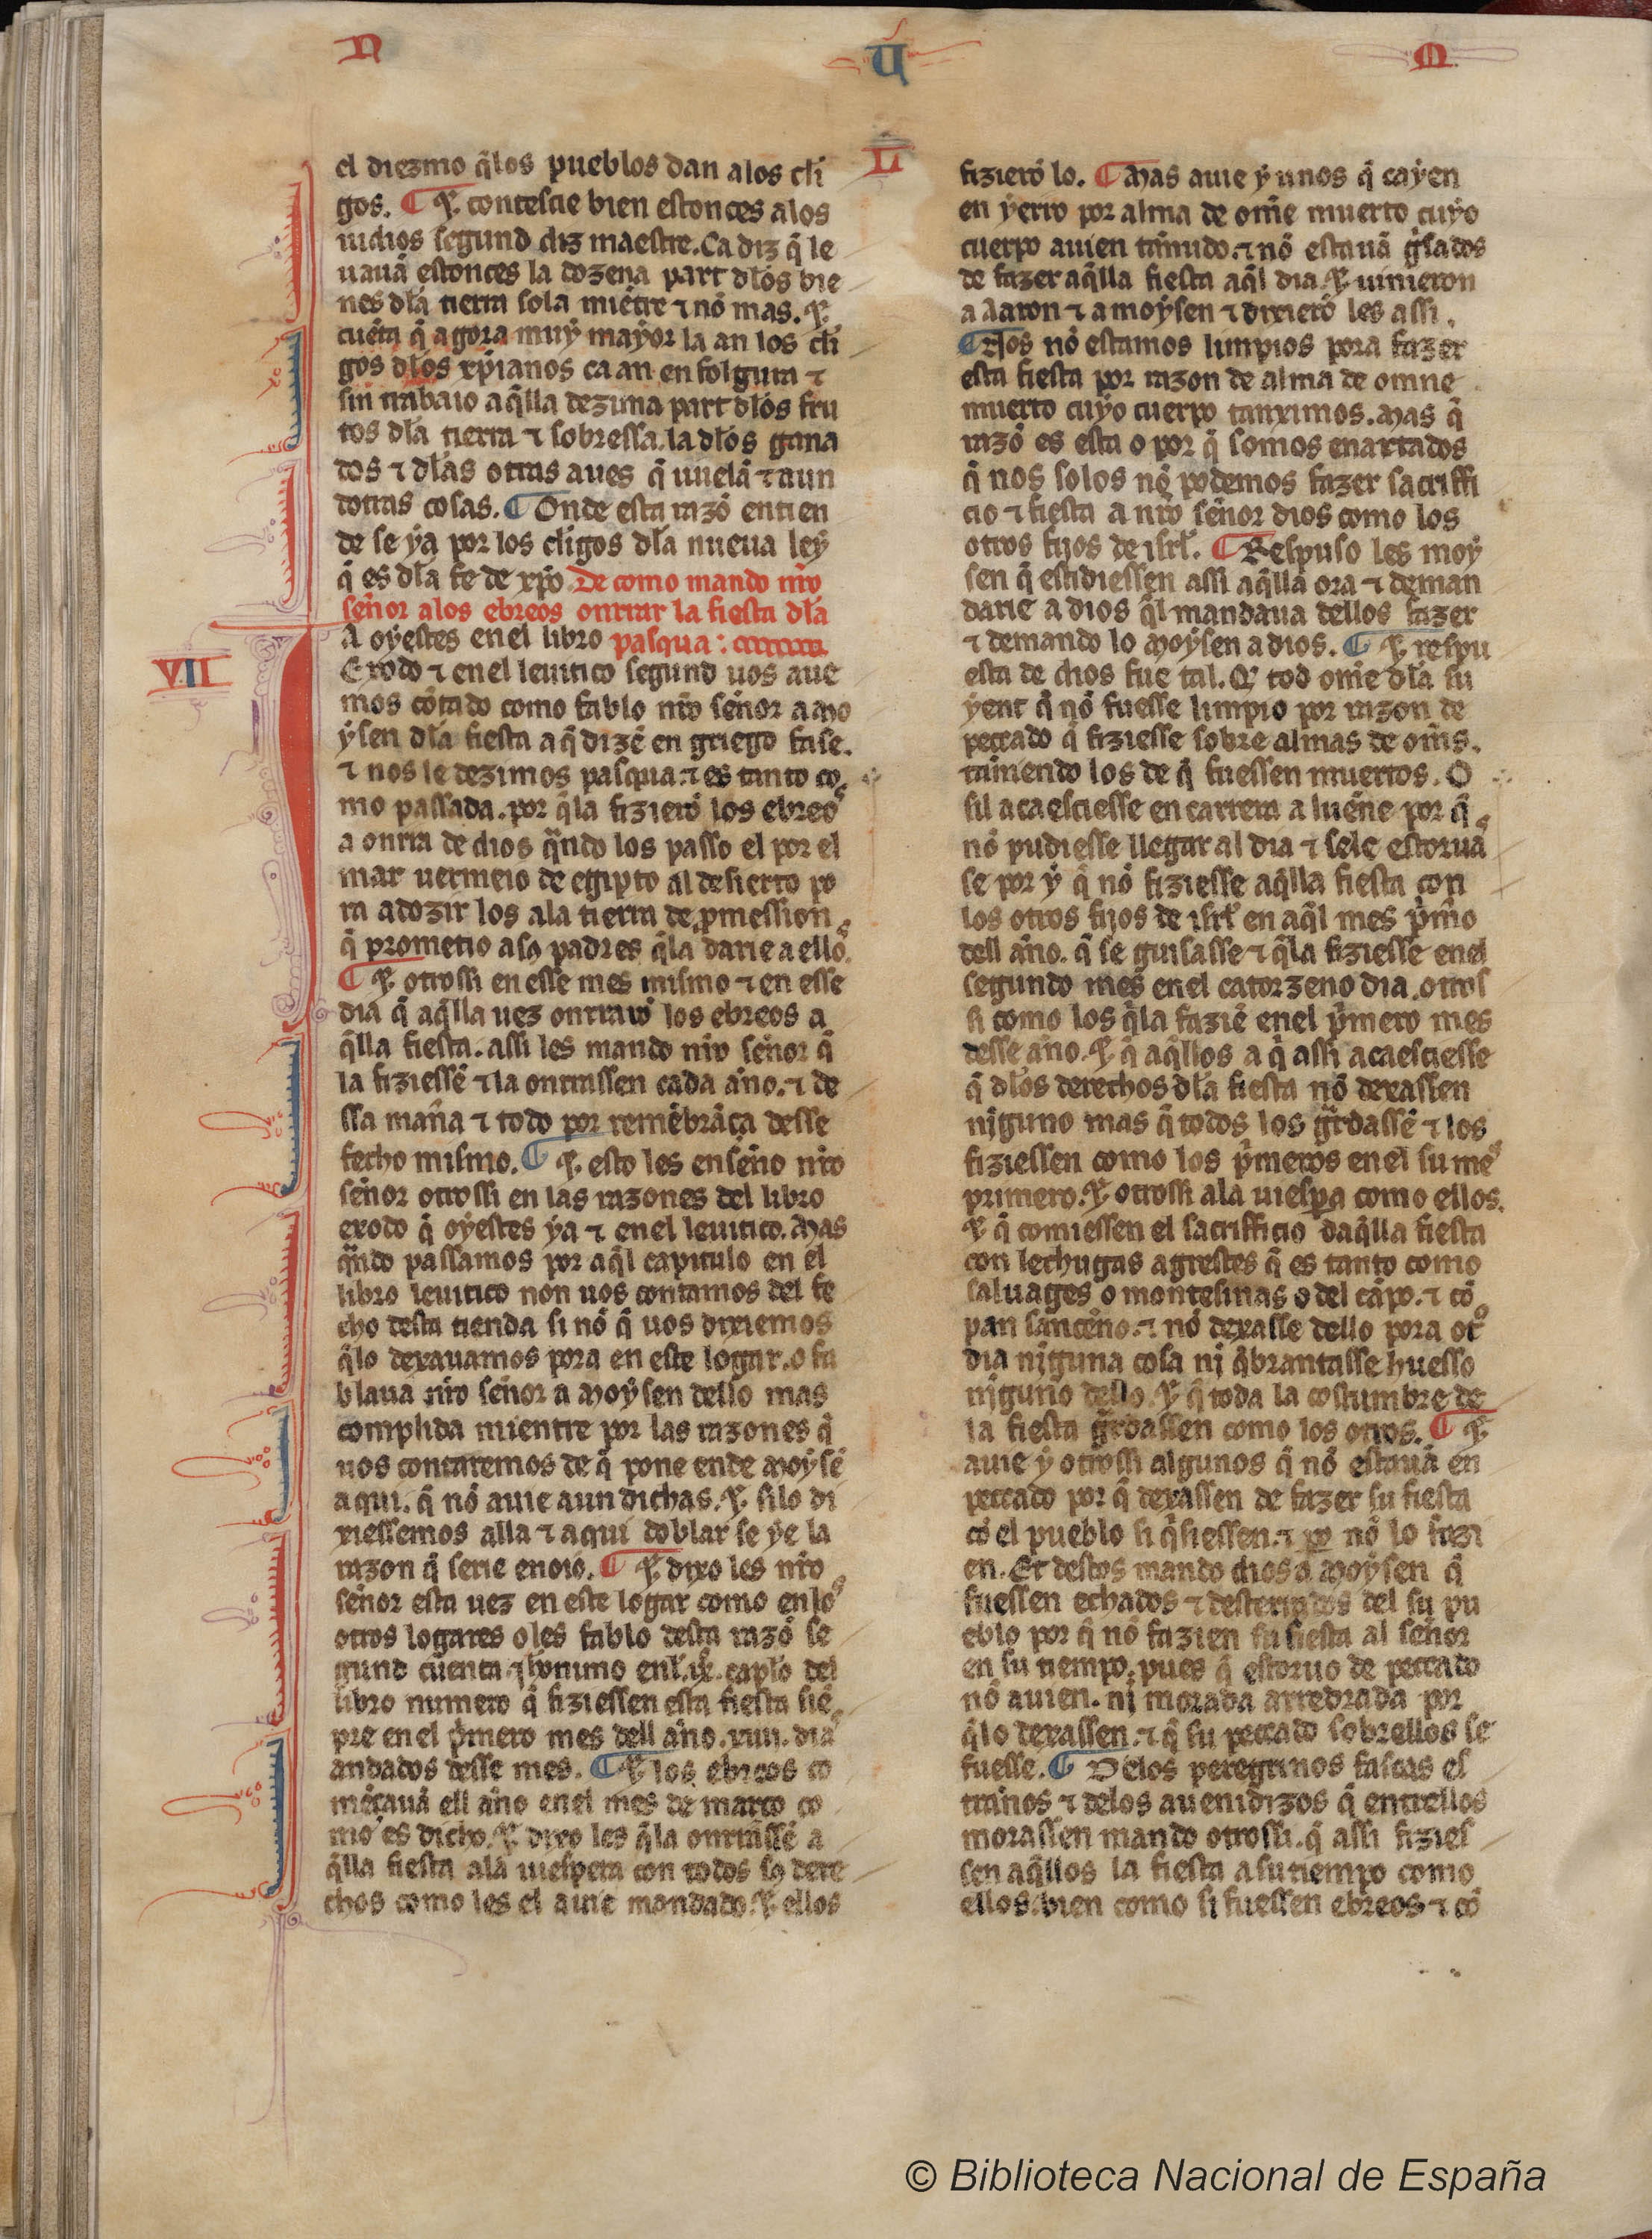 N U M
L
el diezmo q̃ los pueblos dan a los cĺi
gos. ¶ ⁊ contescie bien estonces a los
iudios segund diz maestre. Ca diz q̃ le
uauã estonces la dozena part dĺos bie
nes dĺa tierra sola miẽtre ⁊ nõ mas. ⁊
cuẽta q̃ agora muẏ maẏor la an los cĺi
gos dĺos xp̃ianos ca an en folgura ⁊
sin trabaio aq̃lla dezima part dĺos fru
tos dĺa tierra ⁊ sobressa. la dĺos gana
dos ⁊ dĺas otras aues q̃ uuelã ⁊ aun
dotras cosas. ¶ Onde esta razõ entien
de se ẏa por los cĺigos dĺa nueua leẏ
q̃ es dĺa fe de xp̃o De como mando nr̃o
señor alos ebreos onrrar la fiesta dĺa
A oẏestes en el libro pasqua:
VII
Exodo ⁊ en el leuitico segund uos aue
mos cõtado como fablo nr̃o señor a mo
ẏsen dĺa fiesta a q̃ dizẽ en griego fase.
⁊ nos le dezimos pasqua. ⁊ es tanto co
mo passada. por q̃ la fizierõ los ebreos
a onrra de dios q̃ndo los passo el por el
mar uermeio de egipto al desierto po
ra adozir los ala tierra de p̃mession
q̃ prometio a sꝯ padres q̃ la darie a ellos.
¶ ⁊ otrossi en esse mes mismo ⁊ en esse
dia q̃ aq̃lla uez onrrarõ los ebreos a
q̃lla fiesta. assi les mando nr̃o señor q̃
la fiziessẽ ⁊ la onrrassen cada año. ⁊ de
ssa mañ̃a ⁊ todo por remẽbrãça desse
fecho mismo. ¶ ⁊ esto les enseño nr̃o
señor otrossi en las razones del libro
exodo q̃ oẏestes ẏa ⁊ en el leuitico. Mas
q̃ndo passamos por aq̃l capitulo en el
libro leuitico non uos contamos del fe
cho desta tienda si nõ q̃ uos dixiemos
q̃ lo dexauamos pora en este logar. o fa
blaua nr̃o señor a Moẏsen dello mas
complida mientre por las razones q̃
uos contaremos de q̃ pone ende Moẏsẽ
aqui. q̃ nõ auie aun dichas. ⁊ si lo di
xiessemos alla ⁊ aqui doblar se ẏe la
razon q̃ serie enoio. ¶ ⁊ dixo les nr̃o
señor esta uez en este logar como en los
otros logares o les fablo desta razõ se
gund cuenta iheronimo enl .ix. capĺo del
libro numero q̃ fiziessen esta fiesta siẽ
pre en el p̃mero mes dell año. xiiii. dias
andados desse mes. ¶ ⁊ los ebreos co
mẽçauã ell año en el mes de março co
mo es dicho. ⁊ dixo les q̃ la onrrassẽ a
q̃lla fiesta ala uiespera con todos sꝯ dere
chos como les el auie mandado. ⁊ ellos
fizierõ lo. ¶ Mas auie ẏ unos q̃ caẏen
en ẏerro por alma de om̃e muerto cuẏo
cuerpo auien tañudo. ⁊ nõ estauã g̃sados
de fazer aq̃lla fiesta aq̃l dia. ⁊ uinieron
a Aaron ⁊ a moẏsen ⁊ dixierõ les assi.
¶ Nos nõ estamos limpios pora fazer
esta fiesta por razon de alma de omne
muerto cuẏo cuerpo tanximos. Mas q̃
razõ es esta o por q̃ somos enartados
q̃ nos solos nõ podemos fazer sacriffi
cio ⁊ fiesta a nr̃o señor dios como los
otros fijos de isrĺ. ¶ Respuso les moẏ
sen q̃ estidiessen assi aq̃lla ora ⁊ deman
darie a dios q̃l mandaua dellos fazer
⁊ demando lo Moẏsen a dios. ¶ ⁊ respu
esta de dios fue tal. Q̃ tod om̃e dĺa su
ẏent q̃ nõ fuesse limpio por razon de
peccado q̃ fiziesse sobre almas de om̃s.
tañiendo los de q̃ fuessen muertos. O
sil acaesciesse en carrera a lueñe por q̃
nõ pudiesse llegar al dia ⁊ sele estoruas
se por ẏ q̃ nõ fiziesse aq̃lla fiesta con
los otros fijos de isrĺ en aq̃l mes p̃mo
dell año. q̃ se guisasse ⁊ q̃ la fiziesse en el
segundo mes en el catorzeno dia. otros
si como los q̃ la faziẽ en el p̃mero mes
desse año. ⁊ q̃ aq̃llos a q̃ assi acaesciesse
q̃ dĺos derechos dĺa fiesta nõ dexassen
nĩguno mas q̃ todos los g̃rdassẽ ⁊ los
fiziessen como los p̃meros en el su mes
primero. ⁊ otrossi ala uiespa como ellos.
⁊ q̃ comiessen el sacrifficio daq̃lla fiesta
con lechugas agrestes q̃ es tanto como
saluages o montesinas o del cãpo. ⁊ cõ
pan sanceño. ⁊ nõ dexasse dello pora ot̃
dia nĩguna cosa nĩ q̃brantasse huesso
nĩguno dello. ⁊ q̃ toda la costumbre de
la fiesta g̃rdassen como los otros. ¶ ⁊
auie ẏ otrossi algunos q̃ nõ estauã en
peccado por q̃ dexassen de fazer su fiesta
cõ el pueblo si q̃siessen. ⁊ po nõ lo fazi
en. Et destos mando dios a Moẏsen q̃
fuessen echados ⁊ desterrados del su pu
eblo por q̃ nõ fazien fa fiesta al señor
en su tiempo. pues q̃ estoruo de peccado
nõ auien. nĩ morada arredrada por
q̃ lo dexassen. ⁊ q̃ su peccado sobrellos se
fuesse. ¶ Delos peregrinos fascas es
traños ⁊ delos auenidizos q̃ entrellos
morassen mando otrossi. q̃ assi fizies
sen aq̃llos la fiesta a su tiempo como
ellos. bien como si fuessen ebreos ⁊ cõ
© Biblioteca Nacional de España